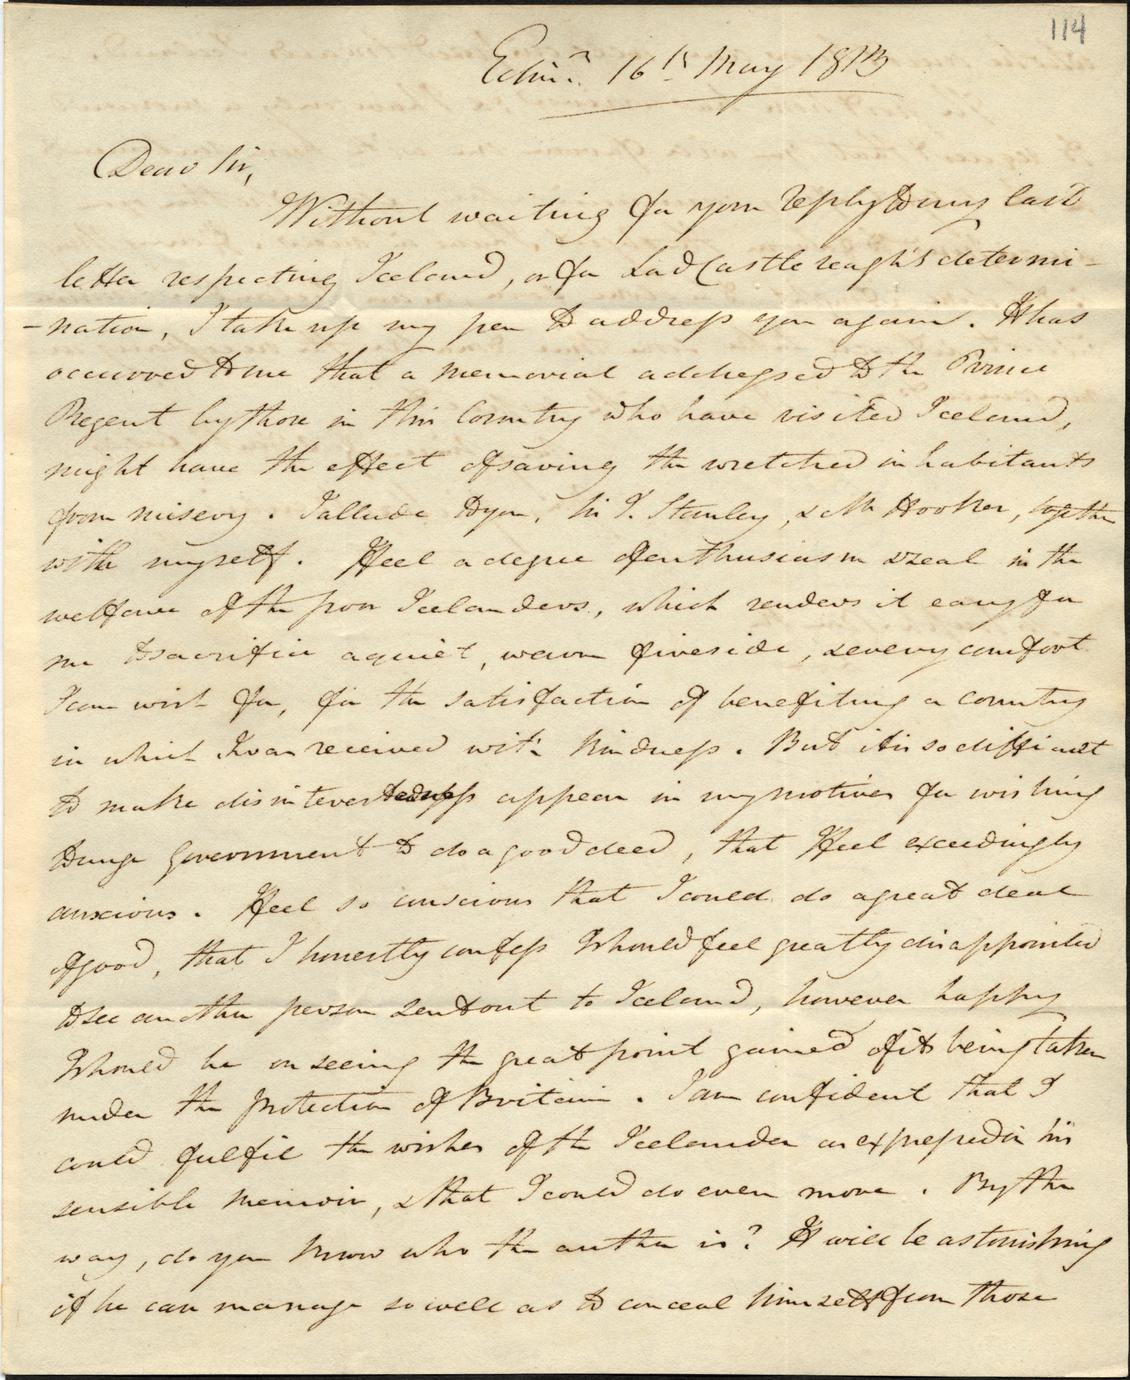 114
Edinr. 16th May 1813
Dear Sir,
Without waiting for your reply to my last
letter respecting Iceland, or for Lord Castlereagh's determi-
-nation, I take up my pen to address you again. It has
occurred to me that a memorial addressed to the Prince
Regent by those in this Country who have visited Iceland,
might have the effect of saving the wretched inhabitants
from misery. I allude to you, Sir J. Stanley, & Mr Hooker, together
with myself. I feel a degree of enthusiasm & zeal in the
welfare of the poor Icelanders, which renders it easy for
me to sacrifice a quiet, warm fireside, & every comfort
I can wish for, for the satisfaction of benefiting a country
in which I was received with kindness. But it is so difficult
to make disinterestedness appear in my motives for wishing
to urge Government to do a good deed, that I feel exceedingly
anxious. I feel so conscious that I could do a great deal
of good, that I honestly confess I should feel greatly disappointed
to see another person sent out to Iceland, however happy
I should be on seeing the great point gained of its being taken
under the protection of Britain. I am confident that I
could fulfil the wishes of the Icelander as expressed in his
sensible memoir, & that I could do even more. By the
way, do you know who the author is? It will be astonishing
if he can manage so well as to conceal himself from those